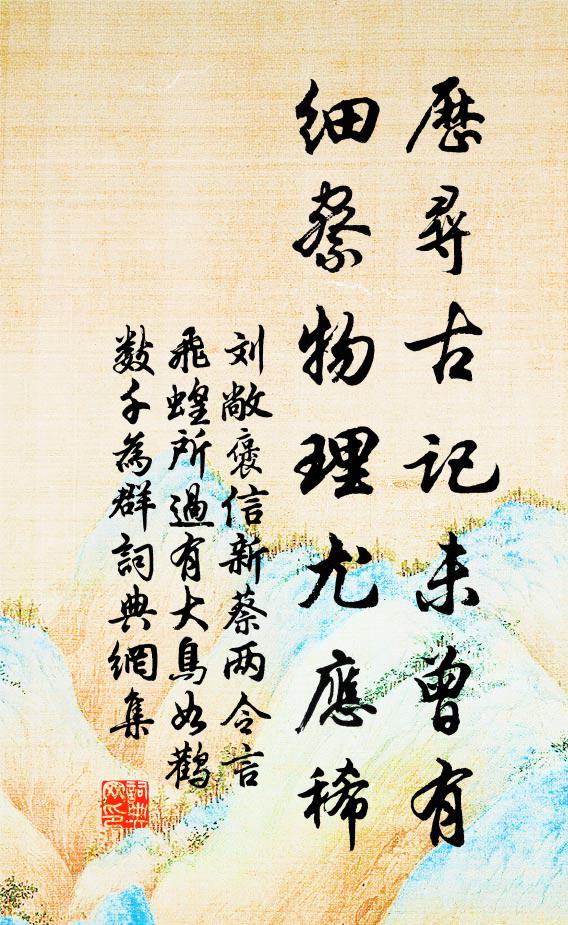 歷尋古記未曾有
細察物理尤應稀
刘敞褒信新蔡两令言
飛蝗所過有大鳥如鸛
數千為群詞典網集